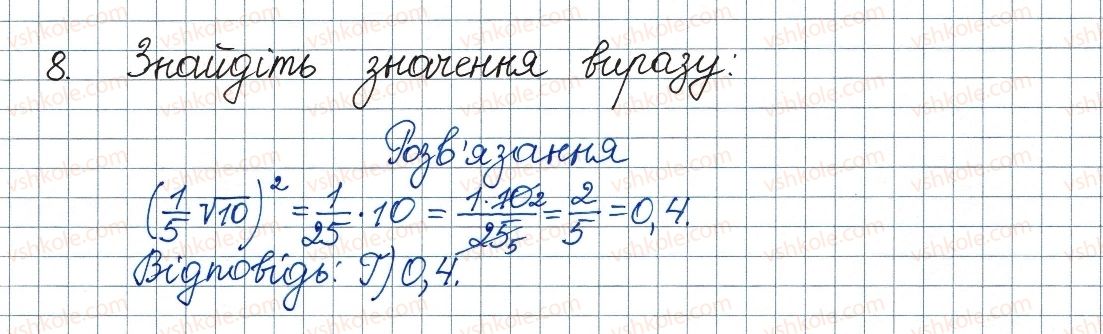 8. Знайдіть значення виразу:
Розв'язання
(1/5 √10)² = 1/25 · 10 = 1·10 2/25 5 = 2/5 = 0,4.
Відповідь: Г) 0,4.